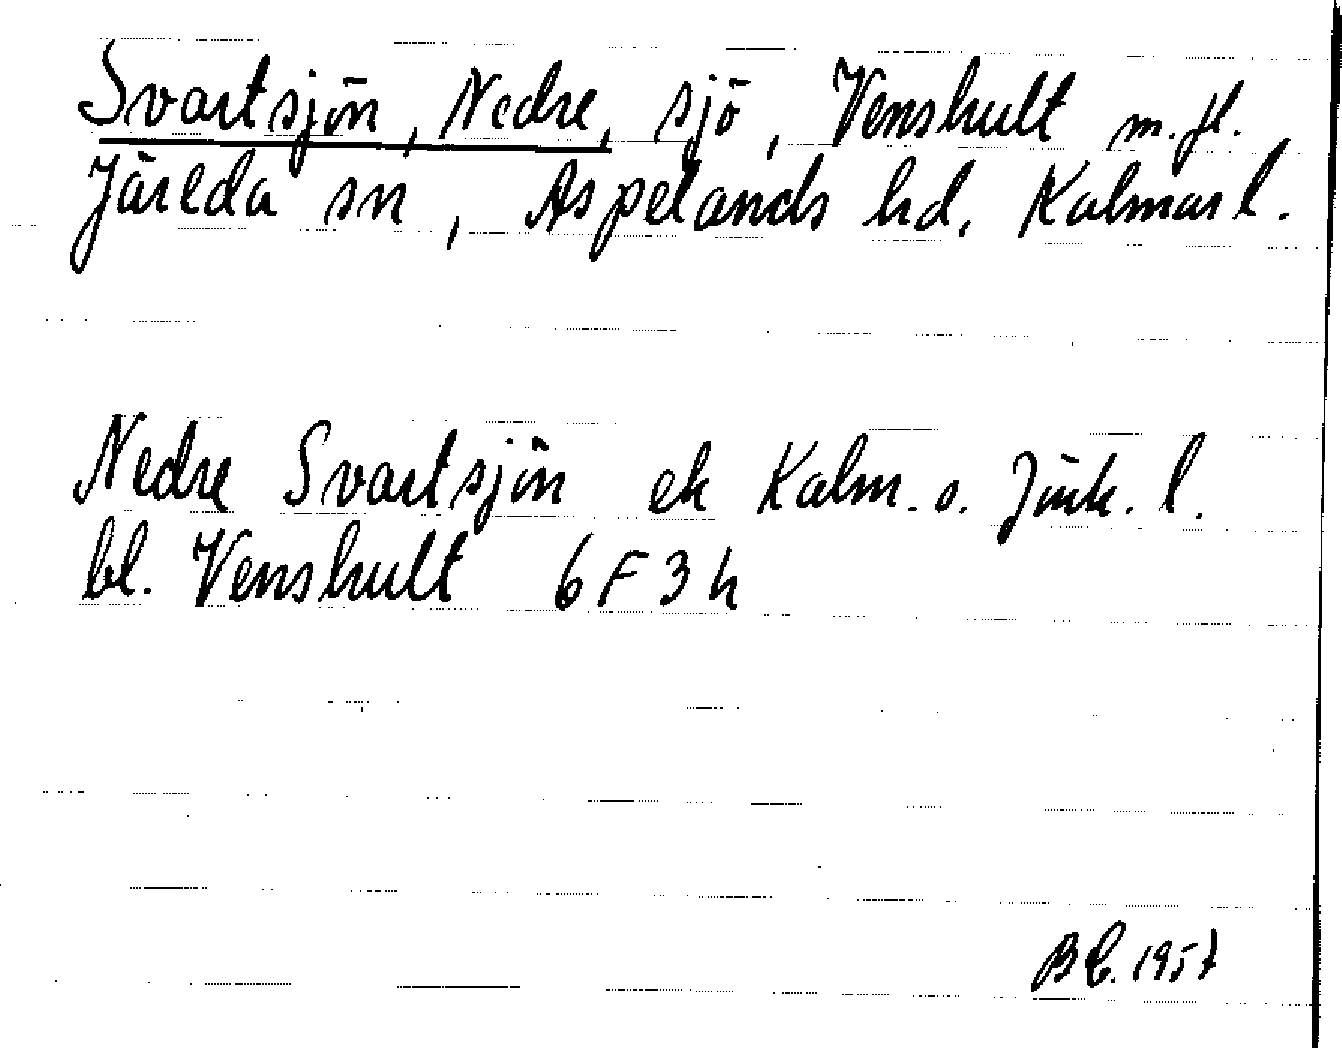 Svartsjön, Nedre, sjö, Venshult m.fl.
Järeda sn, Aspelands hd. Kalmar l.
Nedre Svartsjön ek Kalm. o. Jönk. l.
bl. Venshult 6 F 3 h
1957